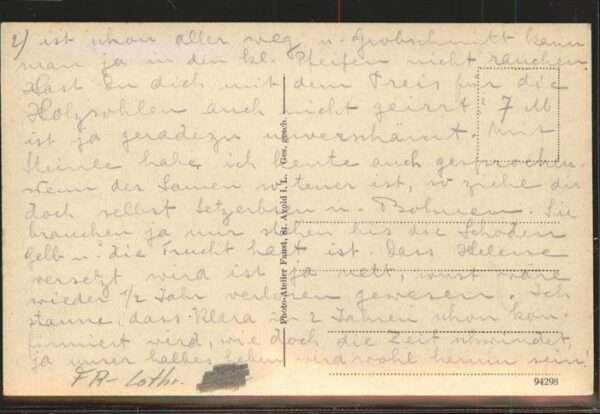 2) ist schon aller weg u. Grobschnitt kann
man ja in den kl. Pfeifen nicht rauchen.
Hast du dich mit dem Preis für die
Holzsohlen auch nicht geirrt? 7 M
ist ja geradezu unverschämt. Mit
Heinle habe ich heute auch gesprochen.
Wenn der Samen so teuer ist, so ziehe dir
doch selbst Setzerbsen u. Bohnen. Sie
brauchen ja nur stehen bis die Schoden
gelb u. die Frucht hart ist. Dass Helene
versetzt wird ist ja nett, sonst wäre
wieder 1/2 Jahr verloren gewesen. Ich
staune, dass Klara in 2 Jahren schon kon-
firmiert wird, wie doch die Zeit schwindet,
ja unser halbes Leben wird wohl herum sein!
FR- Lothr.
Photo-Atelier Faust, St. Avold i. L. Ges. gesch.
94298